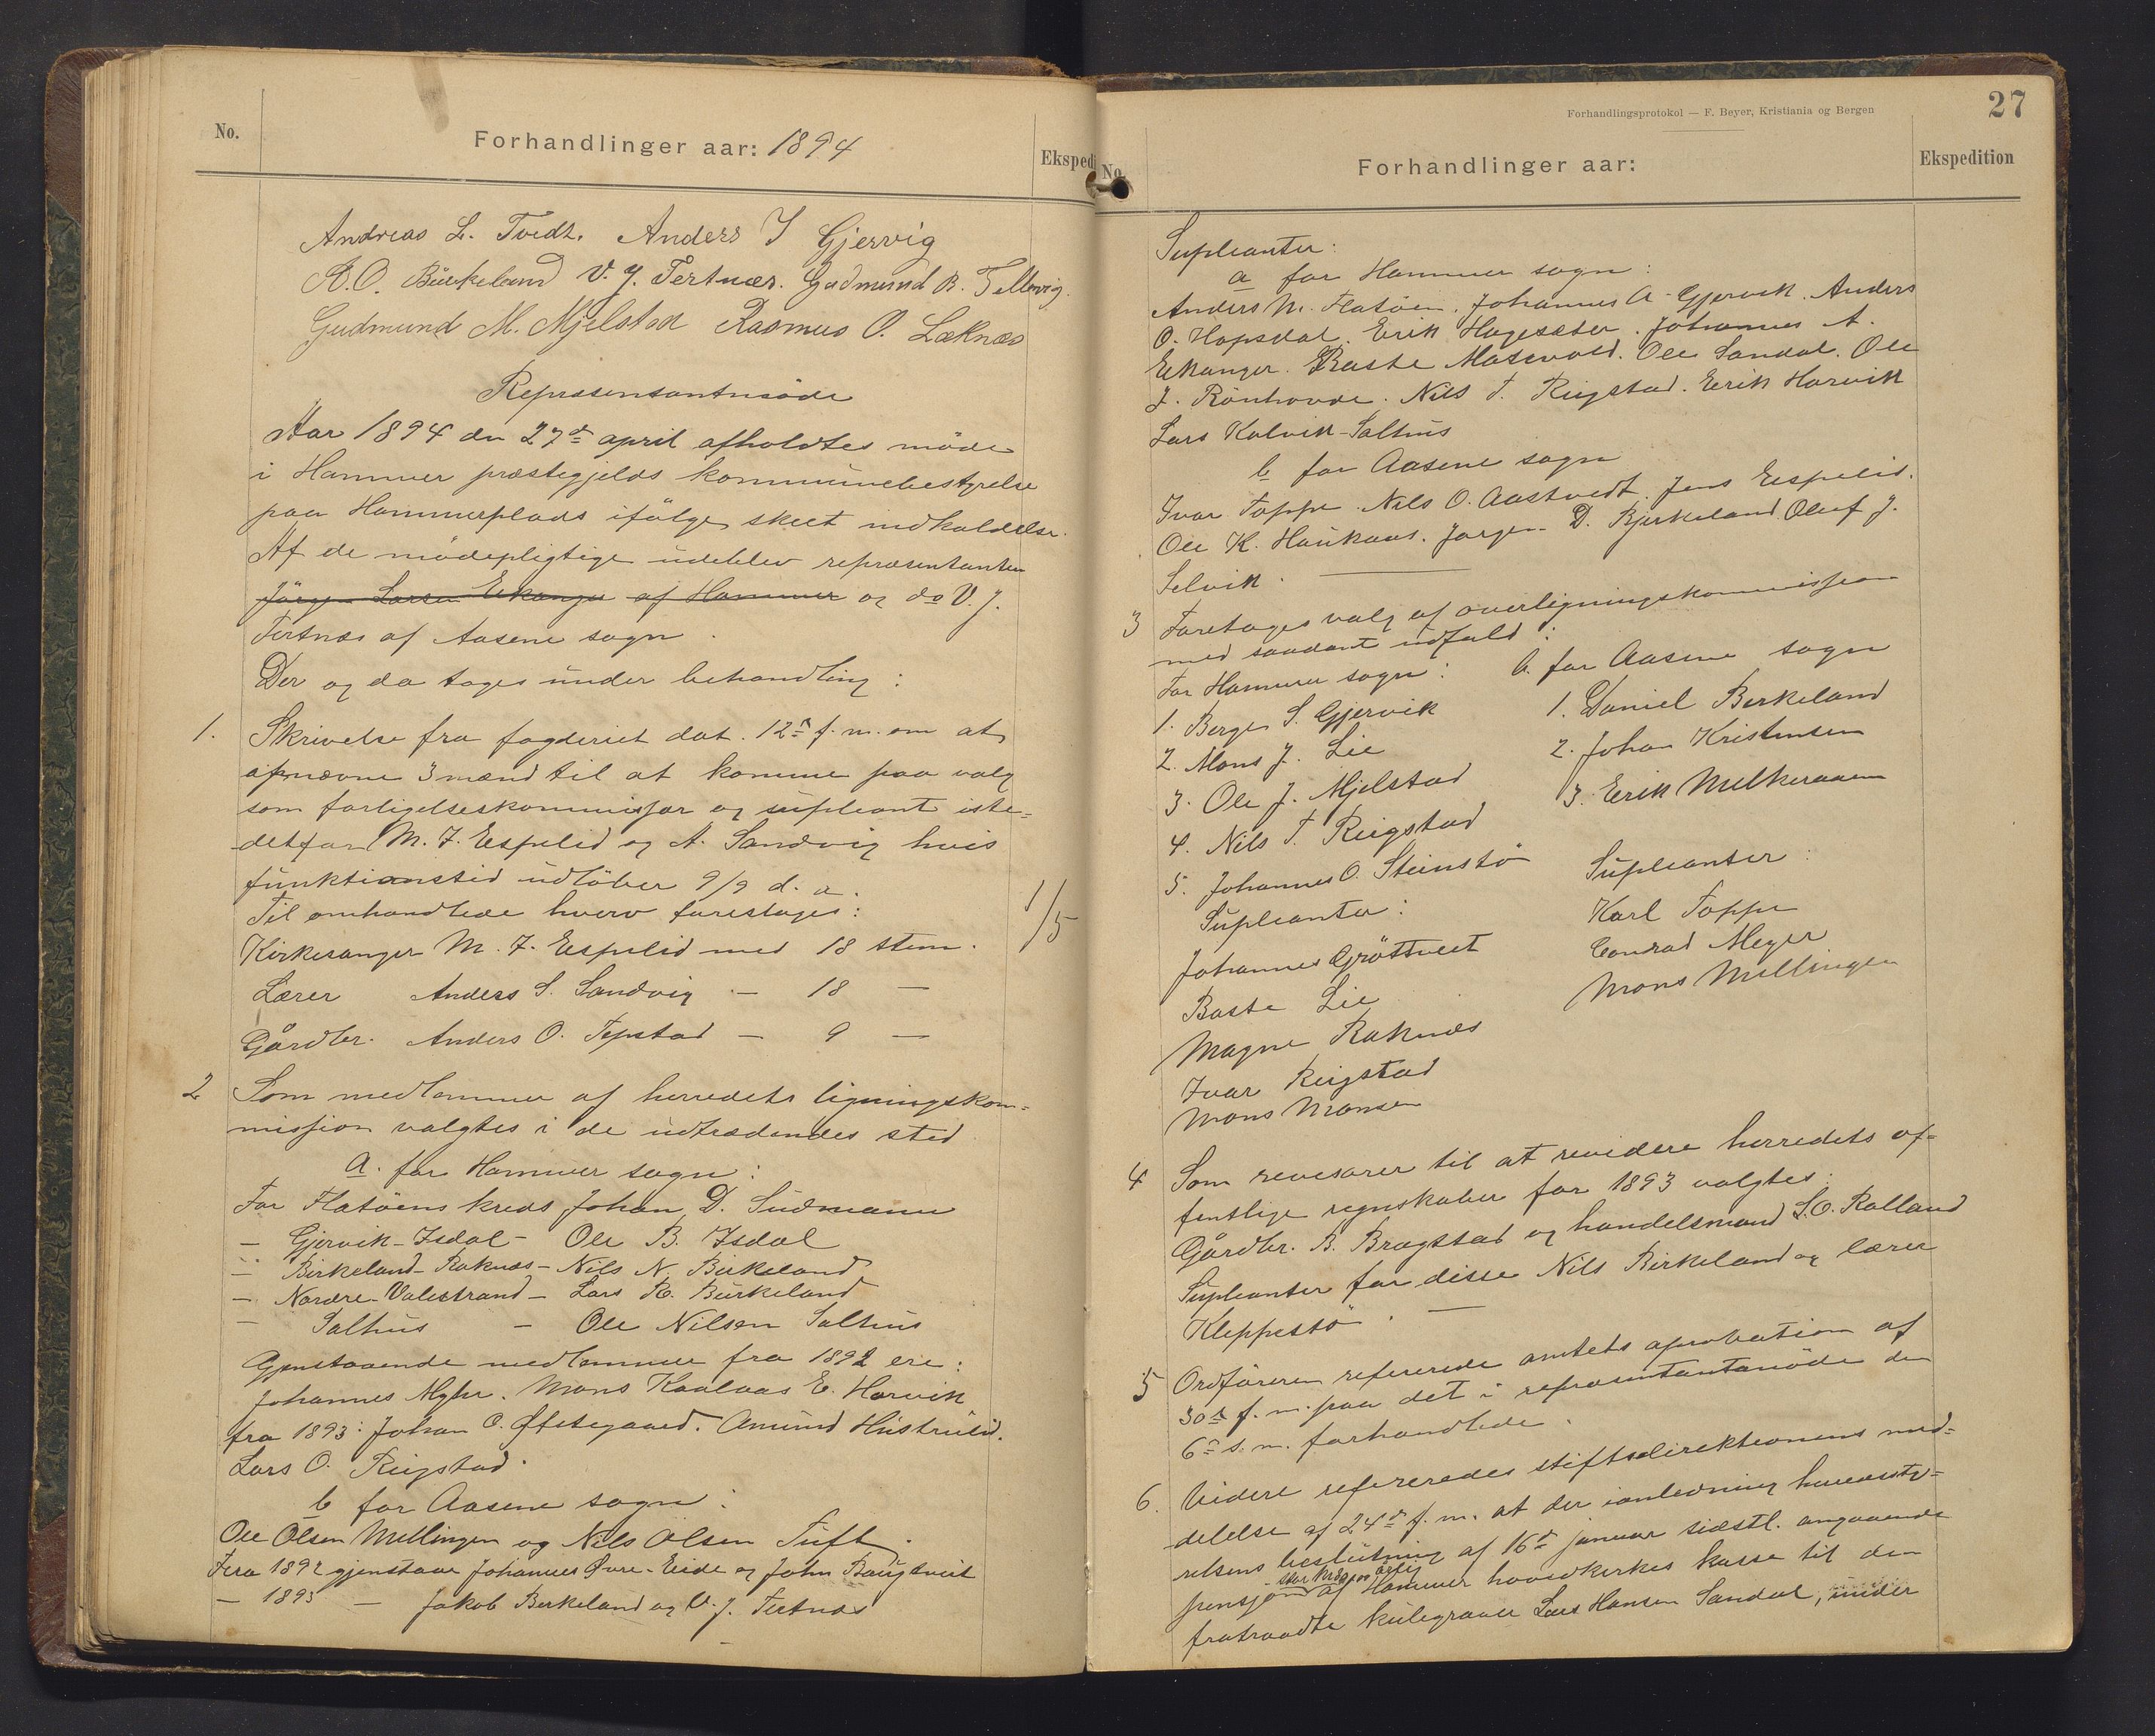 No.
Forhandlinger aar: 1894
Ekspedi
Andreas L. Tvedt. Anders J Gjervig
A.O. Birkeland V. J. Tertnæs. Gudmund B. Tellevig.
Gudmund M. Mjelstad Rasmus O. Læknæs
Repræsentantmöde
Aar 1894 den 27de april afholdtes möde
i Hammer præstegjelds kommunebestyrelse
paa Hammerplads ifölge skeet indkaldelse.
Af de mödepligtige udeblev repræsentanten
Jörgen Larsen Eikanger af Hammer og do V. J.
Tertnæs af Aasene sogn.
Der og da toges under behandling:
1. Skrivelse fra fogderiet dat. 12te f. m. om at
opnævne 3 mænd til at komme paa valg
som forligelseskommissær og supleant iste-
detfor M. J. Espelid og A. Sandvig hvis
funktionstid udlöber 9/9 d. a.
Til omhandlede hverv foresloges:
1/5
Kirkesanger M. J. Espelid med 18 stem.
Lærer Anders S. Sandvig — 18 —
Gårdbr. Anders O. Tepstad — 9 —
2 Som medlemmer af herredets ligningskom-
mission valgtes i de udtrædendes sted
a. for Hammer sogn:
For Flatöens kreds Johan D. Sudmann
— Gjervik-Isdal — Ole B. Isdal
— Birkeland-Raknæs — Nils N. Birkeland
— Nordre-Valestrand — Lars R. Birkeland
— Salhus — Ole Nilsen Salhus
Gjenstaaende medlemmer fra 1892 ere:
Johannes Myhr. Mons Kaalaas E. Horvik
fra 1893: Johan O. Öfstegaard. Amund Hustruлid.
Lars O. Rigstad.
b for Aasene sogn:
Ole Olsen Mellingen og Nils Olsen Tuft.
Fra 1892 gjenstaar Johannes Övre-Eide og John Haugtveit
— 1893 — Jakob Birkeland og V. J. Tertnæs
Forhandlingsprotokol — F. Beyer, Kristiania og Bergen
27
No.
Forhandlinger aar:
Ekspedition
Supleanter:
a for Hammer sogn:
Anders M. Flatöen. Johannes A. Gjervik. Anders
O. Hopsdal. Erik Hagesæter. Johannes A.
Eikanger. Baste Masevold. Ole Sandal. Ole
J. Rönhovde. Nils T. Rigstad. Erik Horvik
Lars Kalvik-Salhus
b for Aasene sogn
Ivar Toppe. Nils O. Aastvedt. Jens Espelid.
Ole K. Haukaas. Jörgen D. Bjerkeland Oluf J.
Selvik.
3 Foretoges valg af overligningskommission
med saadant udfald:
For Hammer sogn: b. for Aasene sogn
1. Berge S. Gjervik 1. Daniel Birkeland
2. Mons J. Lie 2. Johan Kristensen
3. Ole J. Mjelstad 3. Erik Melkeraaen
4. Nils T. Rigstad
5. Johannes O. Steinstö Supleanter:
Supleanter: Karl Toppe
Johannes Gröttveit Conrad Meyer
Baste Lie Mons Mellingen
Magne Raknæs
Ivar Rigstad
Mons Monsen
4 Som revisorer til at revidere herredets of-
fentlige regnskaber for 1893 valgtes:
Gårdbr. B. Bragstad og handelsmand S. O. Rolland
Supleanter for disse Nils Birkeland og lærer
Kleppestö.
5 Ordföreren refererede amtets aprobation af
30te f. m. paa det i repræsentantmöde den
6te s. m. forhandlede.
6. Videre refereredes stiftsdirektionens med-
delelse af 24de f. m. at der ianledning herredssty-
relsens beslutning af 16de januar sidstl. angaaende
pensjon af Hammer hovedkirkes kasse til den
fratraadte kirkegraver Lars Hansen Sandal, under